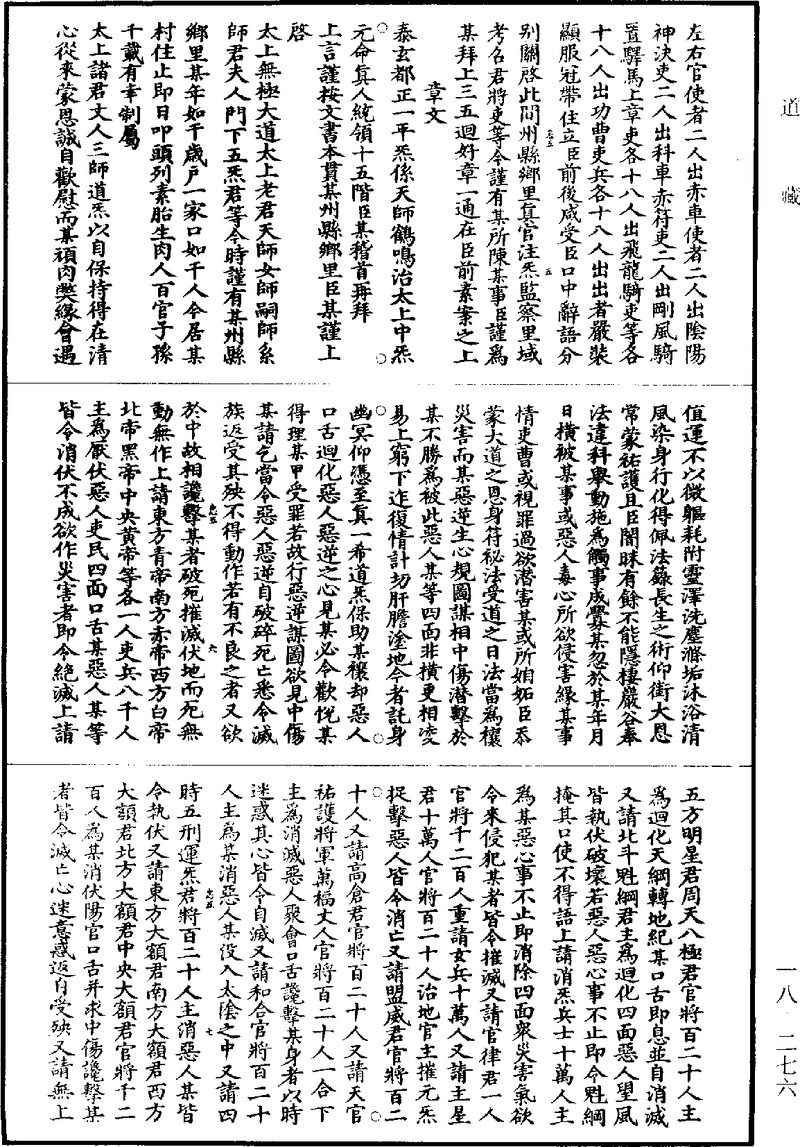 道藏
左右官使者二人出赤車使者二人出陰陽
神決吏二人出科車赤符吏二人出剛風騎
置驛馬上章吏各十八人出飛龍騎吏等各
十八人出功曹吏兵各十八人出出者嚴裝
顯服冠帶住立臣前後咸受臣口中辭語分
别關啓此間州縣鄉里真官注炁監察里域
考名君將吏等令謹有某所陳某事臣謹爲
某拜上三五迴好章一通在臣前素案之上
章文
泰玄都正一平炁係天師鶴鳴治太上中炁
元命真人統領十五階臣某稽首再拜
上言謹按文書本貫某州縣鄉里臣某謹上
啓
太上無極大道太上老君天師女師嗣師系
師君夫人門下五炁君等令時謹有某州縣
鄉里某年如干歲戶一家口如干人令居某
村住止即日叩頭列素胎生肉人百官子孫
千載有幸制屬
太上諸君丈人三師道炁以自保持得在清
心從來蒙恩誠自歡慰而某頑肉獘緣會遇
值運不以微軀耗附靈澤洗塵滌垢沐浴清
風染身行化得佩法籙長生之術仰銜大恩
常蒙祐護且臣闇昧有餘不能隱棲巖谷奉
法違科舉動施爲觸事成釁某忽於某年月
日橫被某事或惡人毒心所欲侵害緣某事
情吏曹或視罪過欲潛害某或所姻妬臣忝
蒙大道之恩身符秘法受道之日法當爲禳
災害而某惡逆生心規圖謀相中傷潛擊於
某不勝爲被此惡人某等四面非橫更相凌
易上窮下迮復情計切肝膽塗地今者託身
幽冥仰憑至真一希道炁保助某禳却惡人
口舌迴化惡人惡逆之心見某必令歡悅某
得理某甲受罪若故行惡逆謀圖欲見中傷
某請乞當令惡人惡逆自破碎死亡悉令滅
族返受其殃不得動作若有不良之者又欲
於中故相讒擊某者破死摧滅伏地而死無
動無作上請東方青帝南方赤帝西方白帝
北帝黑帝中央黃帝等各一人吏兵八千人
主爲厭伏惡人吏民四面口舌某惡人某等
皆令消伏不成欲作災害者即令絕滅上請
五方明星君周天八極君官將百二十人主
爲迴化天綱轉地紀某口舌即息並自消滅
又請北斗魁綱君主爲迴化四面惡人望風
皆執伏破壞若惡人惡心事不止即令魁綱
掩其口使不得語上請消炁兵士十萬人主
爲某惡心事不止即消除四面衆災害氣欲
令來侵犯某者皆令摧滅又請官律君一人
官將千二百人重請女兵十萬人又請主星
君十萬人官將百二十人治地官主摧元炁
捉擊惡人皆令消亡又請盟威君官將百二
十人又請高倉君官將百二十人又請天官
祐護將軍萬福丈人官將百二十人一合下
主爲消滅惡人聚會口舌讒擊某身者以時
迷惑其心皆令自滅又請和合官將百二十
人主爲某消惡人某役入太陰之中又請四
時五刑運炁君將百二十人主消惡人某皆
令執伏又請東方大額君南方大額君西方
大額君北方大額君中央大額君官將千二
百人爲某消伏陽官口舌并求中傷讒擊某
者皆令滅亡心迷意惑返自受殃又請無上
一八·二七六